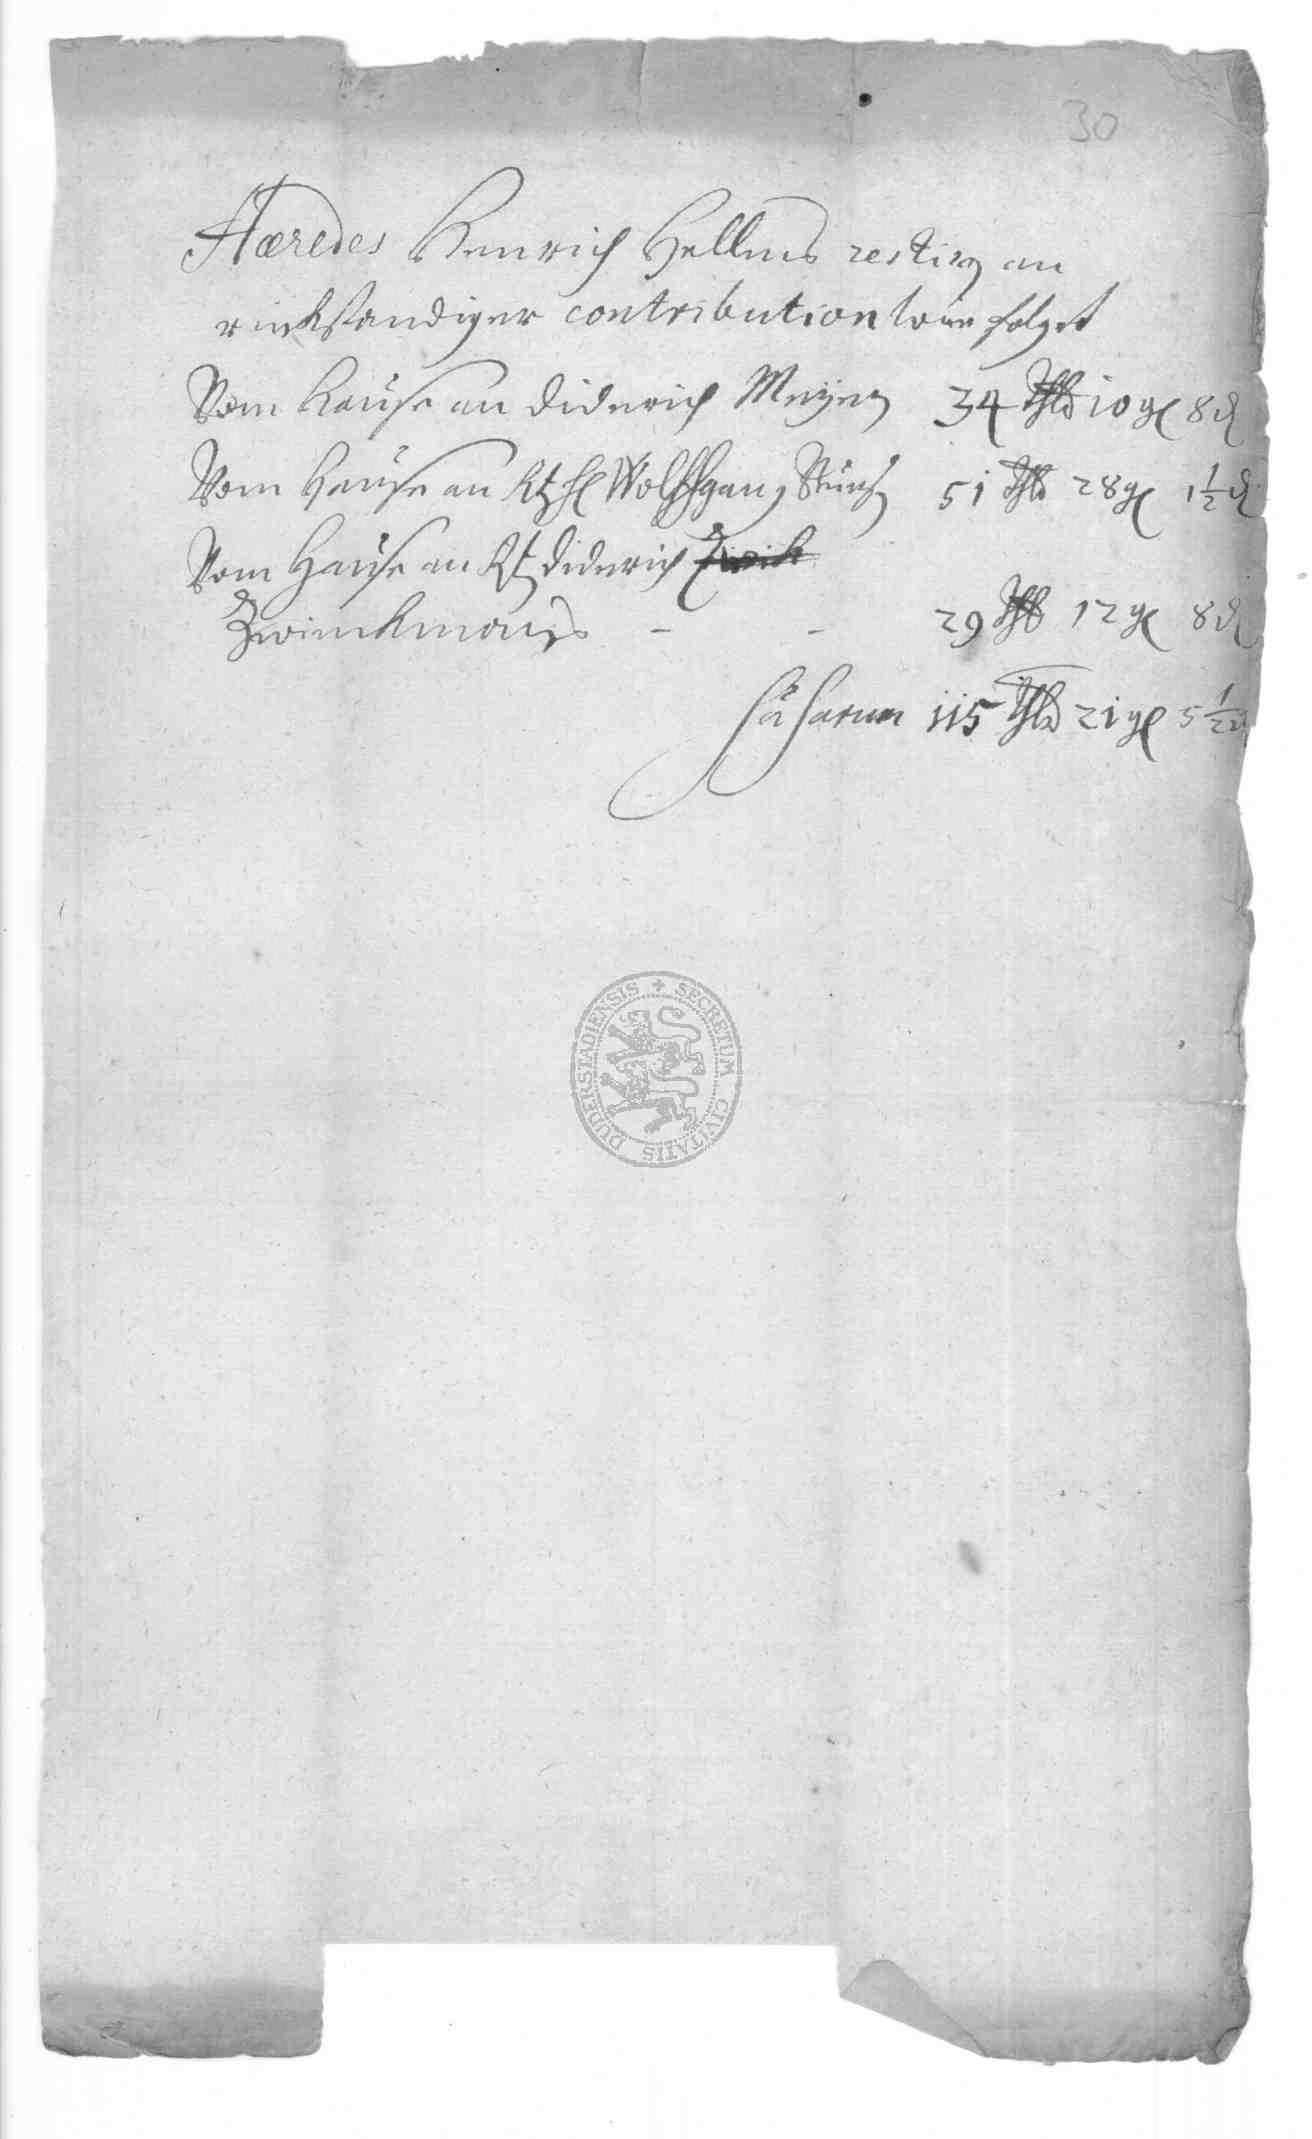 30
Hæredes Henrich Hellms restirn an
rückstandiger contribution wie folget
Vom Hause an Diderich Meyern 34 Thlr 10 gl 8 d
Vom Hause an Wolffgang 51 Thlr 28 gl 1½ d
Vom Hause an Diderich Zwick
Zwinckmans - - 29 Thlr 12 gl 8 d
Sarum 115 Thlr 21 gl 5½ d
SECRETUM CIVITATIS DUDERSTADIENSIS